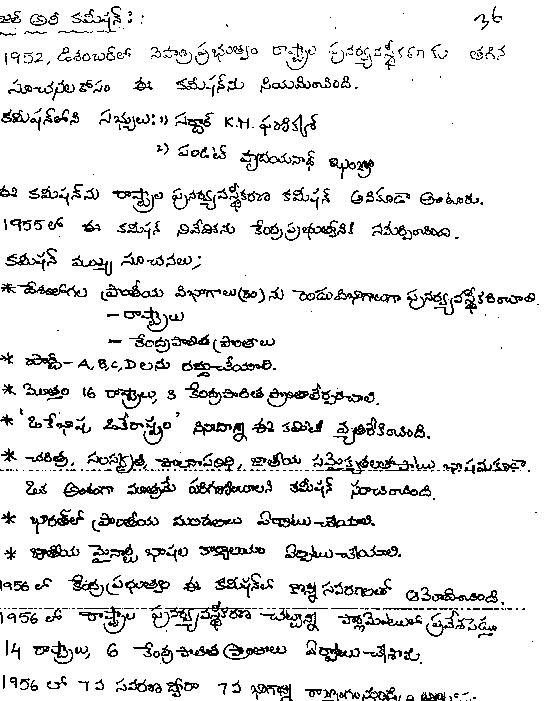 ఫజల్ అలీ కమీషన్ :: 36
1952, డిశంబర్‌లో నెహ్రూ ప్రభుత్వం రాష్ట్రాల పునర్వ్యవస్థీకరణకు తగిన
సూచనల కోసం ఈ కమీషన్‌ను నియమించింది.
కమీషన్‌లోని సభ్యులు: 1) సర్దార్ K.M. ఫణిక్కర్
2) పండిట్ హృదయనాథ్ కుంజ్రూ
ఈ కమీషన్‌ను రాష్ట్రాల పునర్వ్యవస్థీకరణ కమీషన్ అనికూడా అంటారు.
1955 లో ఈ కమీషన్ నివేదికను కేంద్రప్రభుత్వానికి సమర్పించింది.
కమీషన్ ముఖ్య సూచనలు;
* దేశంలోగల ప్రాంతీయ విభాగాలు ను రెండు విభాగాలుగా పునర్వ్యవస్థీకరించాలి.
- రాష్ట్రాలు
- కేంద్రపాలిత ప్రాంతాలు
* పార్ట్ - A, B, C, D లను రద్దుచేయాలి.
* మొత్తం 16 రాష్ట్రాలు, 3 కేంద్రపాలిత ప్రాంతాలేర్పరచాలి.
* 'ఒకేభాష ఒకేరాష్ట్రం' నినాదాన్ని ఈ కమిటీ వ్యతిరేకించింది.
* చరిత్ర, సంస్కృతి, జాతీయ సమైక్యతలతోపాటు భాషనుకూడా
ఒక అంశంగా మాత్రమే పరిగణించాలని కమీషన్ సూచించింది.
* భారత్‌లో ప్రాంతీయ మండలాలు ఏర్పాటుచేయాలి.
* జాతీయ మైనార్టీ భాషల కార్యాలయం ఏర్పాటుచేయాలి.
1956 లో కేంద్రప్రభుత్వం ఈ కమీషన్‌లో కొన్ని సవరణలతో ఆమోదించింది.
1956 లో రాష్ట్రాల పునర్వ్యవస్థీకరణ చట్టాన్ని పార్లమెంటులో ప్రవేశపెట్టి
14 రాష్ట్రాలు, 6 కేంద్రపాలిత ప్రాంతాలు ఏర్పాటు చేశారు.
1956 లో 7వ సవరణ ద్వారా 7వ భాగాన్ని రాజ్యాంగంనుండి